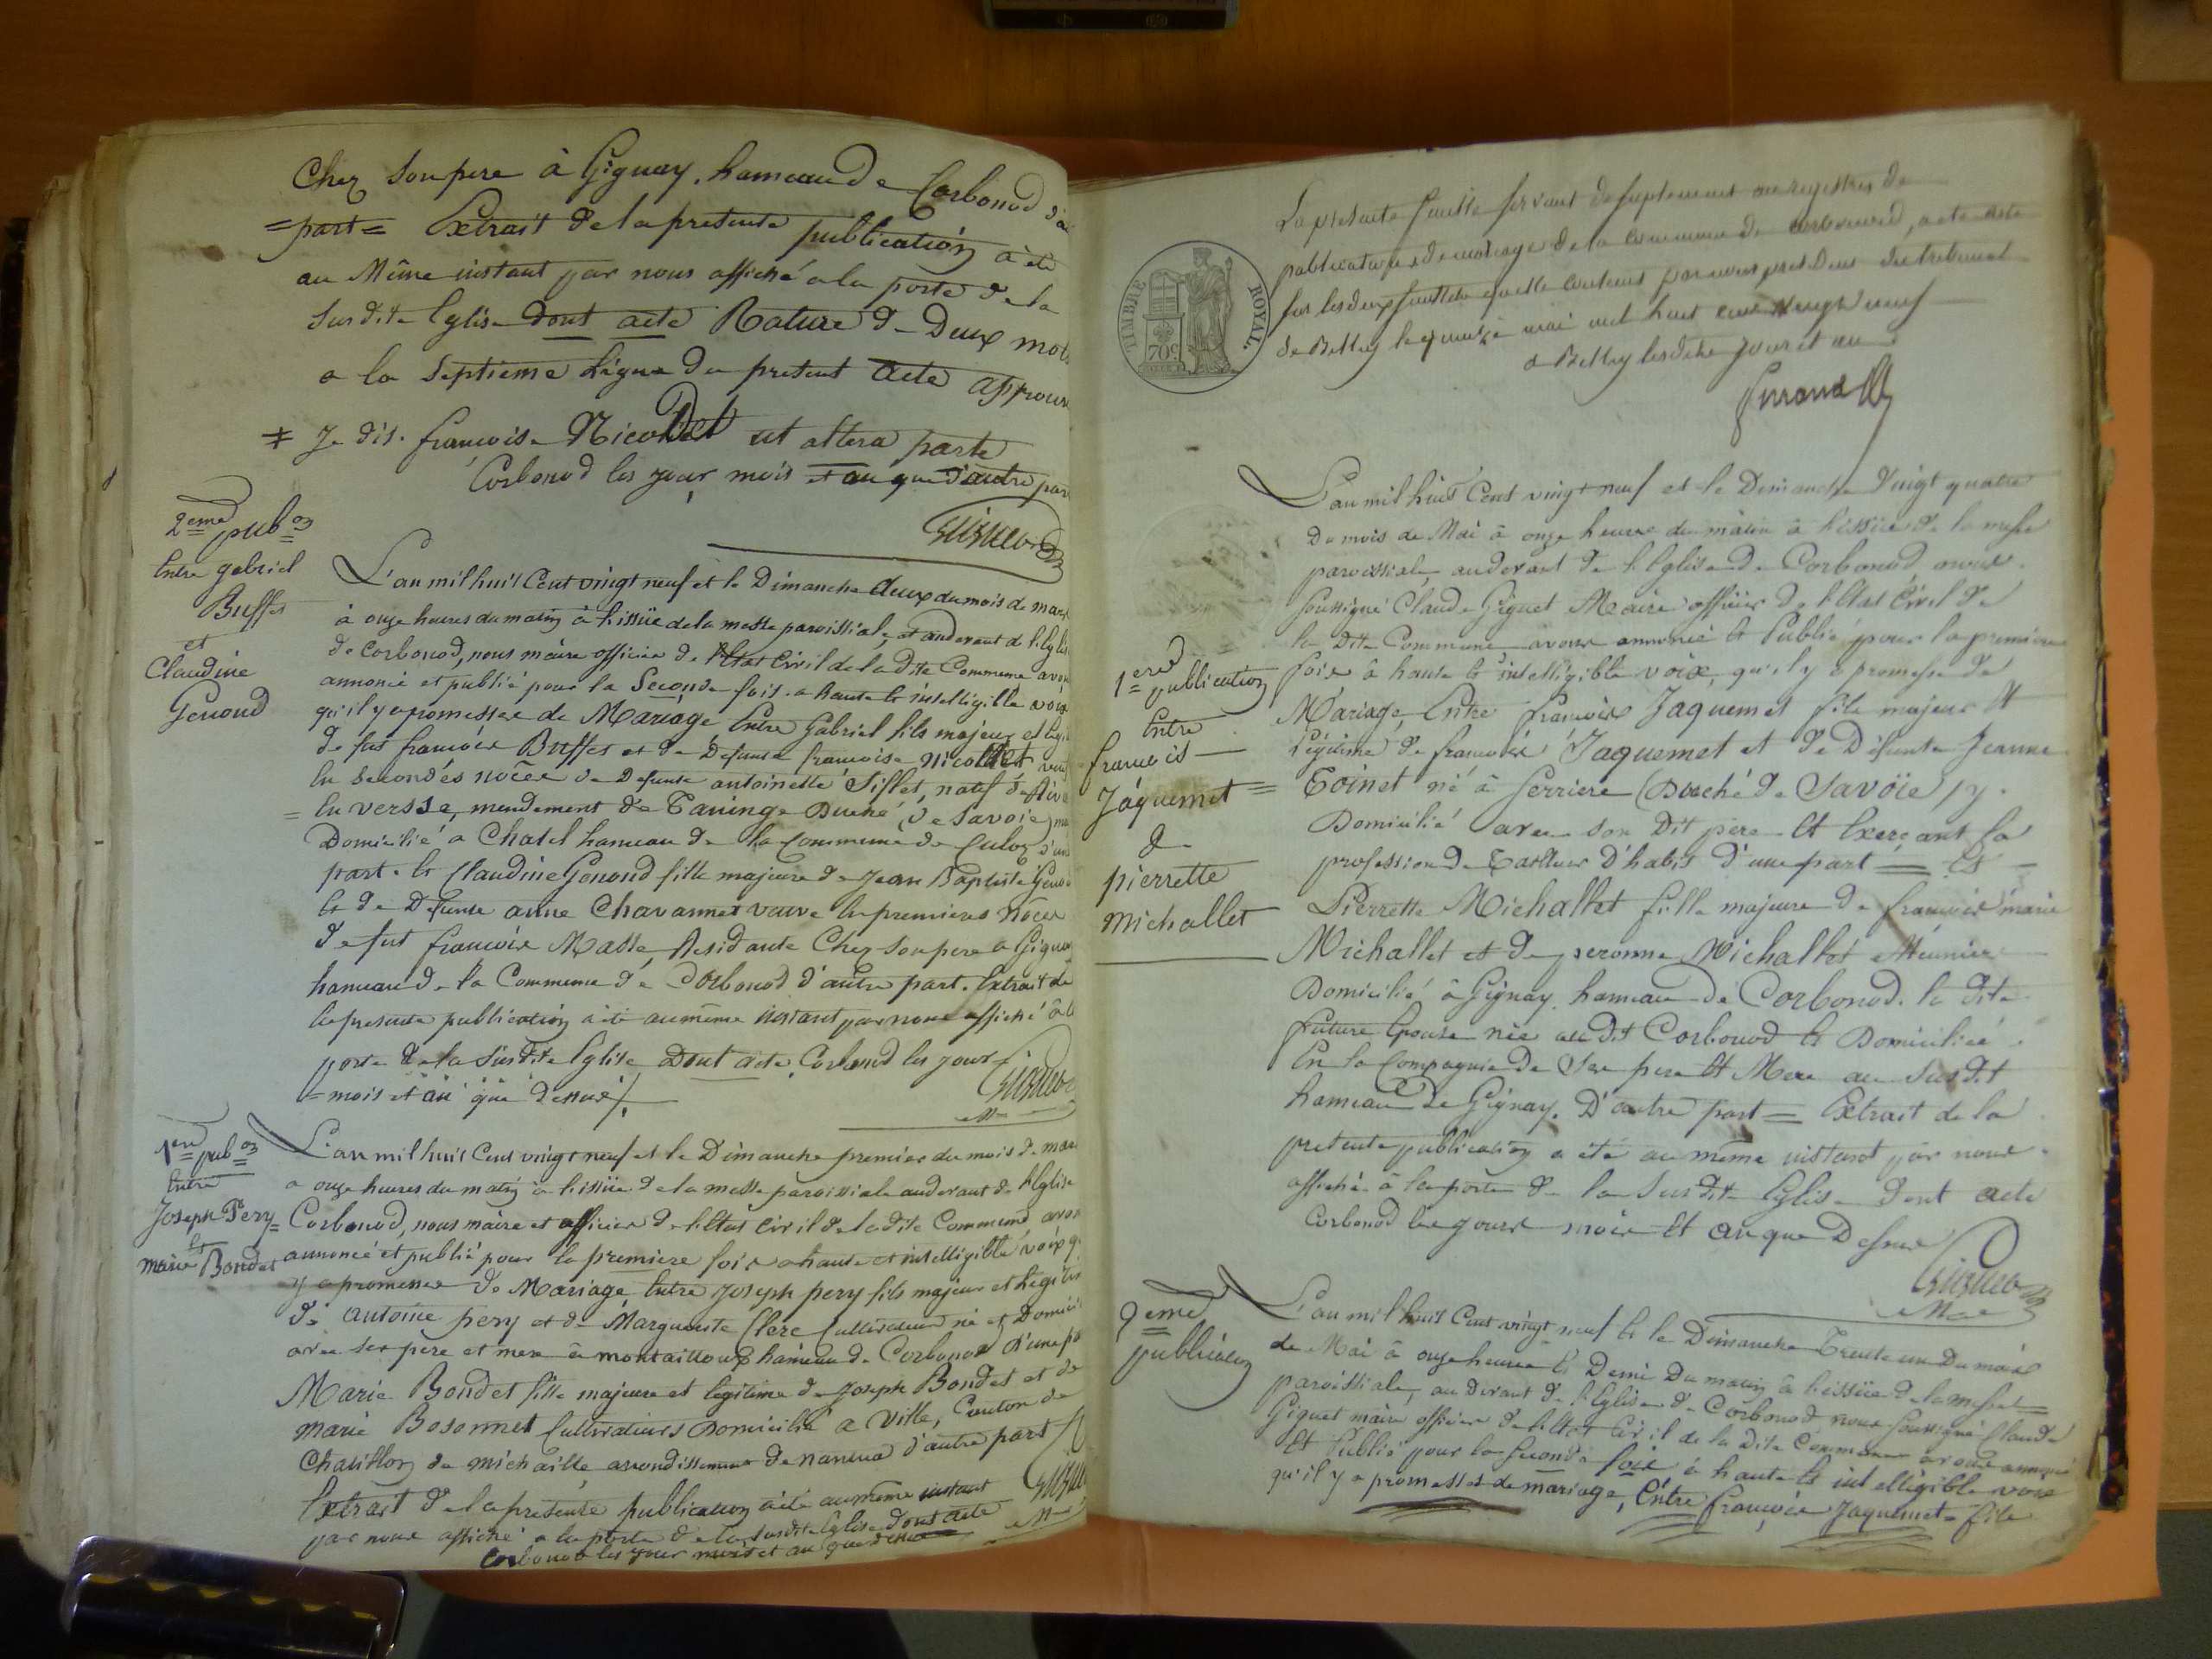 Chez son pere à Gignay, hameau de Corbonod d'au
=part= Extrait de la presente publication à été
au Même instant par nous affiché a la porte de la
Susdite Eglise dont acte Rature de Deux mots
a la Septieme Ligne du present acte approuv
≠ Je dis. francoise Nicollet ut altera parte
Corbonod les jour mois et an que d'autre par
2eme pubon
Entre gabriel
Buffet
et
Claudine
Genoud
L'an mil huit Cent vingt neuf et le Dimanche deux du mois de mars
à onze heures du matin à l'issüe de la messe paroissiale, et au devant de l'Eglis
de Corbonod, nous maire officier de l'Etat Civil de la dite Commune avon
annoncé et publié pour la Seconde fois a haute Et intelligible voix
qu'il y a promesse de Mariage Entre Gabriel fils majeur et légi
de fut francois Buffet et de Defunte francoise Nicollet
En secondes nôces de Defunte antoinette Siflet, natif de Rive
= En versse, mendement de Taninge Duché de Savoie)
Domicilié a Chatel hameau de la Commune de Culoz d'un
part. Et Claudine Genoud fille majeure de Jean Baptiste Genou
Et de Defunte anne Chavannet veuve En premieres nôces
de fut francois Masse, Residante Chez son pere a Gigna
hameau de la Commune de Corbonod d'autre part. Extrait de
la presente publication à été au même instant par nous affiché à la
porte de la Susdite Eglise Dont acte, Corbonod les jour
= mois et an que dessus/.
1ere pubon
Entre
Joseph Pery=
Et
marie Bondet
L'an mil huit Cent vingt neuf et le Dimanche premier du mois de mar
a onze heures du matin à l'issüe de la messe paroissiale au devant de l'Eglise
Corbonod, nous maire et officier de l'Etat Civil de la dite Commune, avon
annoncé et publié pour la premiere fois a haute et intelligible voix q
y a promesse de Mariage Entre Joseph pery fils majeur et Légitim
de antoine pery et de Marguerite Clerc Cultivateur né et Domicil
avec ses pere et mere à montailloux hameau de Corbonod D'une pa
Marie Bondet fille majeure et legitime de Joseph Bondet et de
marie Bosonnet Cultivateurs Domicilié a Ville, Canton de
Chatillon de michaille arrondissement de nantua d'autre part
Extrait de la presente publication à été au même instant
par nous affiché a la porte de la susdite Eglise dont acte
Corbonod les jour mois et an que dessus
TIMBRE ROYAL.
70c
La presente feuille servant de suplement au registre de
publications de mariage de la Commune de Corbonod, a été
sur les deux feuillets qu'elle contient par nous president du tribunal
de Belley le quinze mai mil huit cent vingt neuf
a Belley lesdits jour et an
L'an mil huit Cent vingt neuf et le Dimanche Vingt quatre
Du mois de Mai à onze heure du matin à l'issüe de la messe
paroissiale, au devant de l'Eglise de Corbonod nous
soussigné Claude Giguet Maire officier de l'Etat Civil de
la dite Commune, avons annoncé Et Publié pour la premiere
fois à haute Et intelligible voix, qu'il y a promesse de
Mariage, Entre francois Jaquemet fils majeur Et
Légitime de francois Jaquemet et de Défunte Jeanne
Toinet né à ferriere (Duché de Savoïe) y.
Domicilié avec son Dit père Et Exerçant la
profession de Tailleur D'habit d'une part = Et =
Pierrette Michallet fille majeure de francois marie
Michallet et de peronne Michallet Meunier
Domicilié à Gignay hameau de Corbonod. la dite
future Epouse née au dit Corbonod Et Domiciliée
En la Compagnie De Ses pere Et Mere au Susdit
hameau de Gignay. D'autre part = Extrait de la
presente publication a été au même instant par nous
affiché à la porte de la Susdite Eglise Dont acte
Corbonod les jours mois Et an que Dessus
1ere publication
Entre
francois
Jaquemet=
&
pierrette
michallet
2eme
publication
L'an mil huit Cent vingt neuf Et le Dimanche Trente un Du mois
de Mai à onze heures Et Demi Du matin à l'issüe de la messe=
paroissiale, au devant de l'Eglise de Corbonod nous soussigné Claude
Giguet maire officier de l'Etat Civil de la Dite Commune avons annoncé
Et Publié pour la Seconde fois à haute Et intelligible voix
qu'il y a promesses de mariage, Entre françois Jaquemet= fils